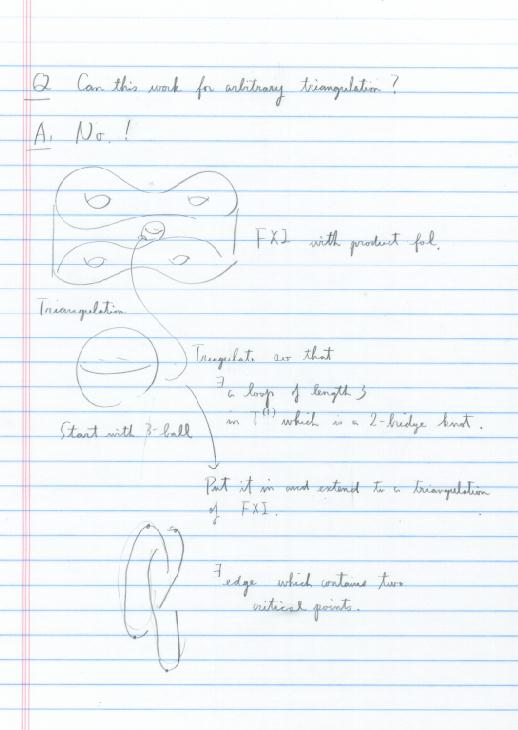 Q Can this work for arbitrary triangulation?
A. No.!
FXI with product fol.
Triangulation
Triangulate so that
∃ a loop of length 3
in T⁽¹⁾ which is a 2-bridge knot.
Start with 3-ball
Put it in and extend to a triangulation
of FXI.
∃ edge which contains two
critical points.